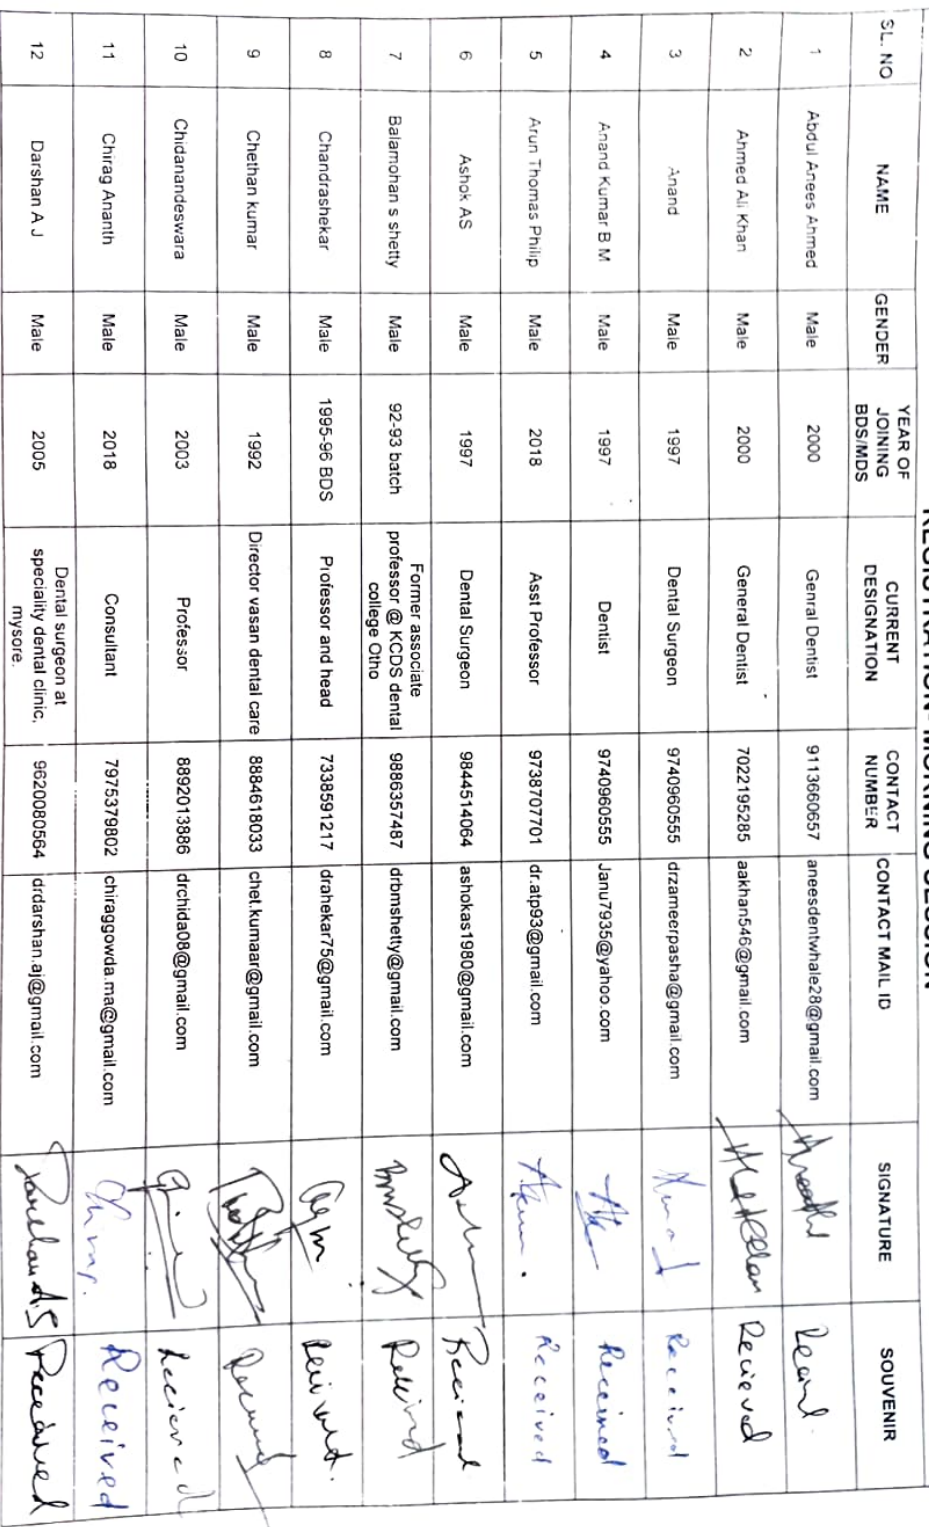 REGISTRATION- MORNING SESSION
SL. NO NAME GENDER YEAR OF JOINING BDS/MDS CURRENT DESIGNATION CONTACT NUMBER CONTACT MAIL ID SIGNATURE SOUVENIR
1 Abdul Anees Ahmed Male 2000 Genral Dentist 9113660657 aneesdentwhale28@gmail.com
2 Ahmed Ali Khan Male 2000 General Dentist 7022195285 aakhan546@gmail.com Recieved
3 Anand Male 1997 Dental Surgeon 9740960555 drzameerpasha@gmail.com Anand Received
4 Anand Kumar B M Male 1997 Dentist 9740960555 Janu7935@yahoo.com Received
5 Arun Thomas Philip Male 2018 Asst Professor 9738707701 dr.atp93@gmail.com Received
6 Ashok AS Male 1997 Dental Surgeon 9844514064 ashokas1980@gmail.com Received
7 Balamohan s shetty Male 92-93 batch Former associate professor @ KCDS dental college Otho 9886357487 drbmshetty@gmail.com Bmshetty
8 Chandrashekar Male 1995-96 BDS Professor and head 7338591217 drahekar75@gmail.com
9 Chethan kumar Male 1992 Director vasan dental care 8884618033 chet.kumaar@gmail.com
10 Chidanandeswara Male 2003 Professor 8892013886 drchida08@gmail.com
11 Chirag Ananth Male 2018 Consultant 7975379802 chiraggowda.ma@gmail.com Received
12 Darshan A J Male 2005 Dental surgeon at speciality dental clinic, mysore. 9620080564 drdarshan.aj@gmail.com